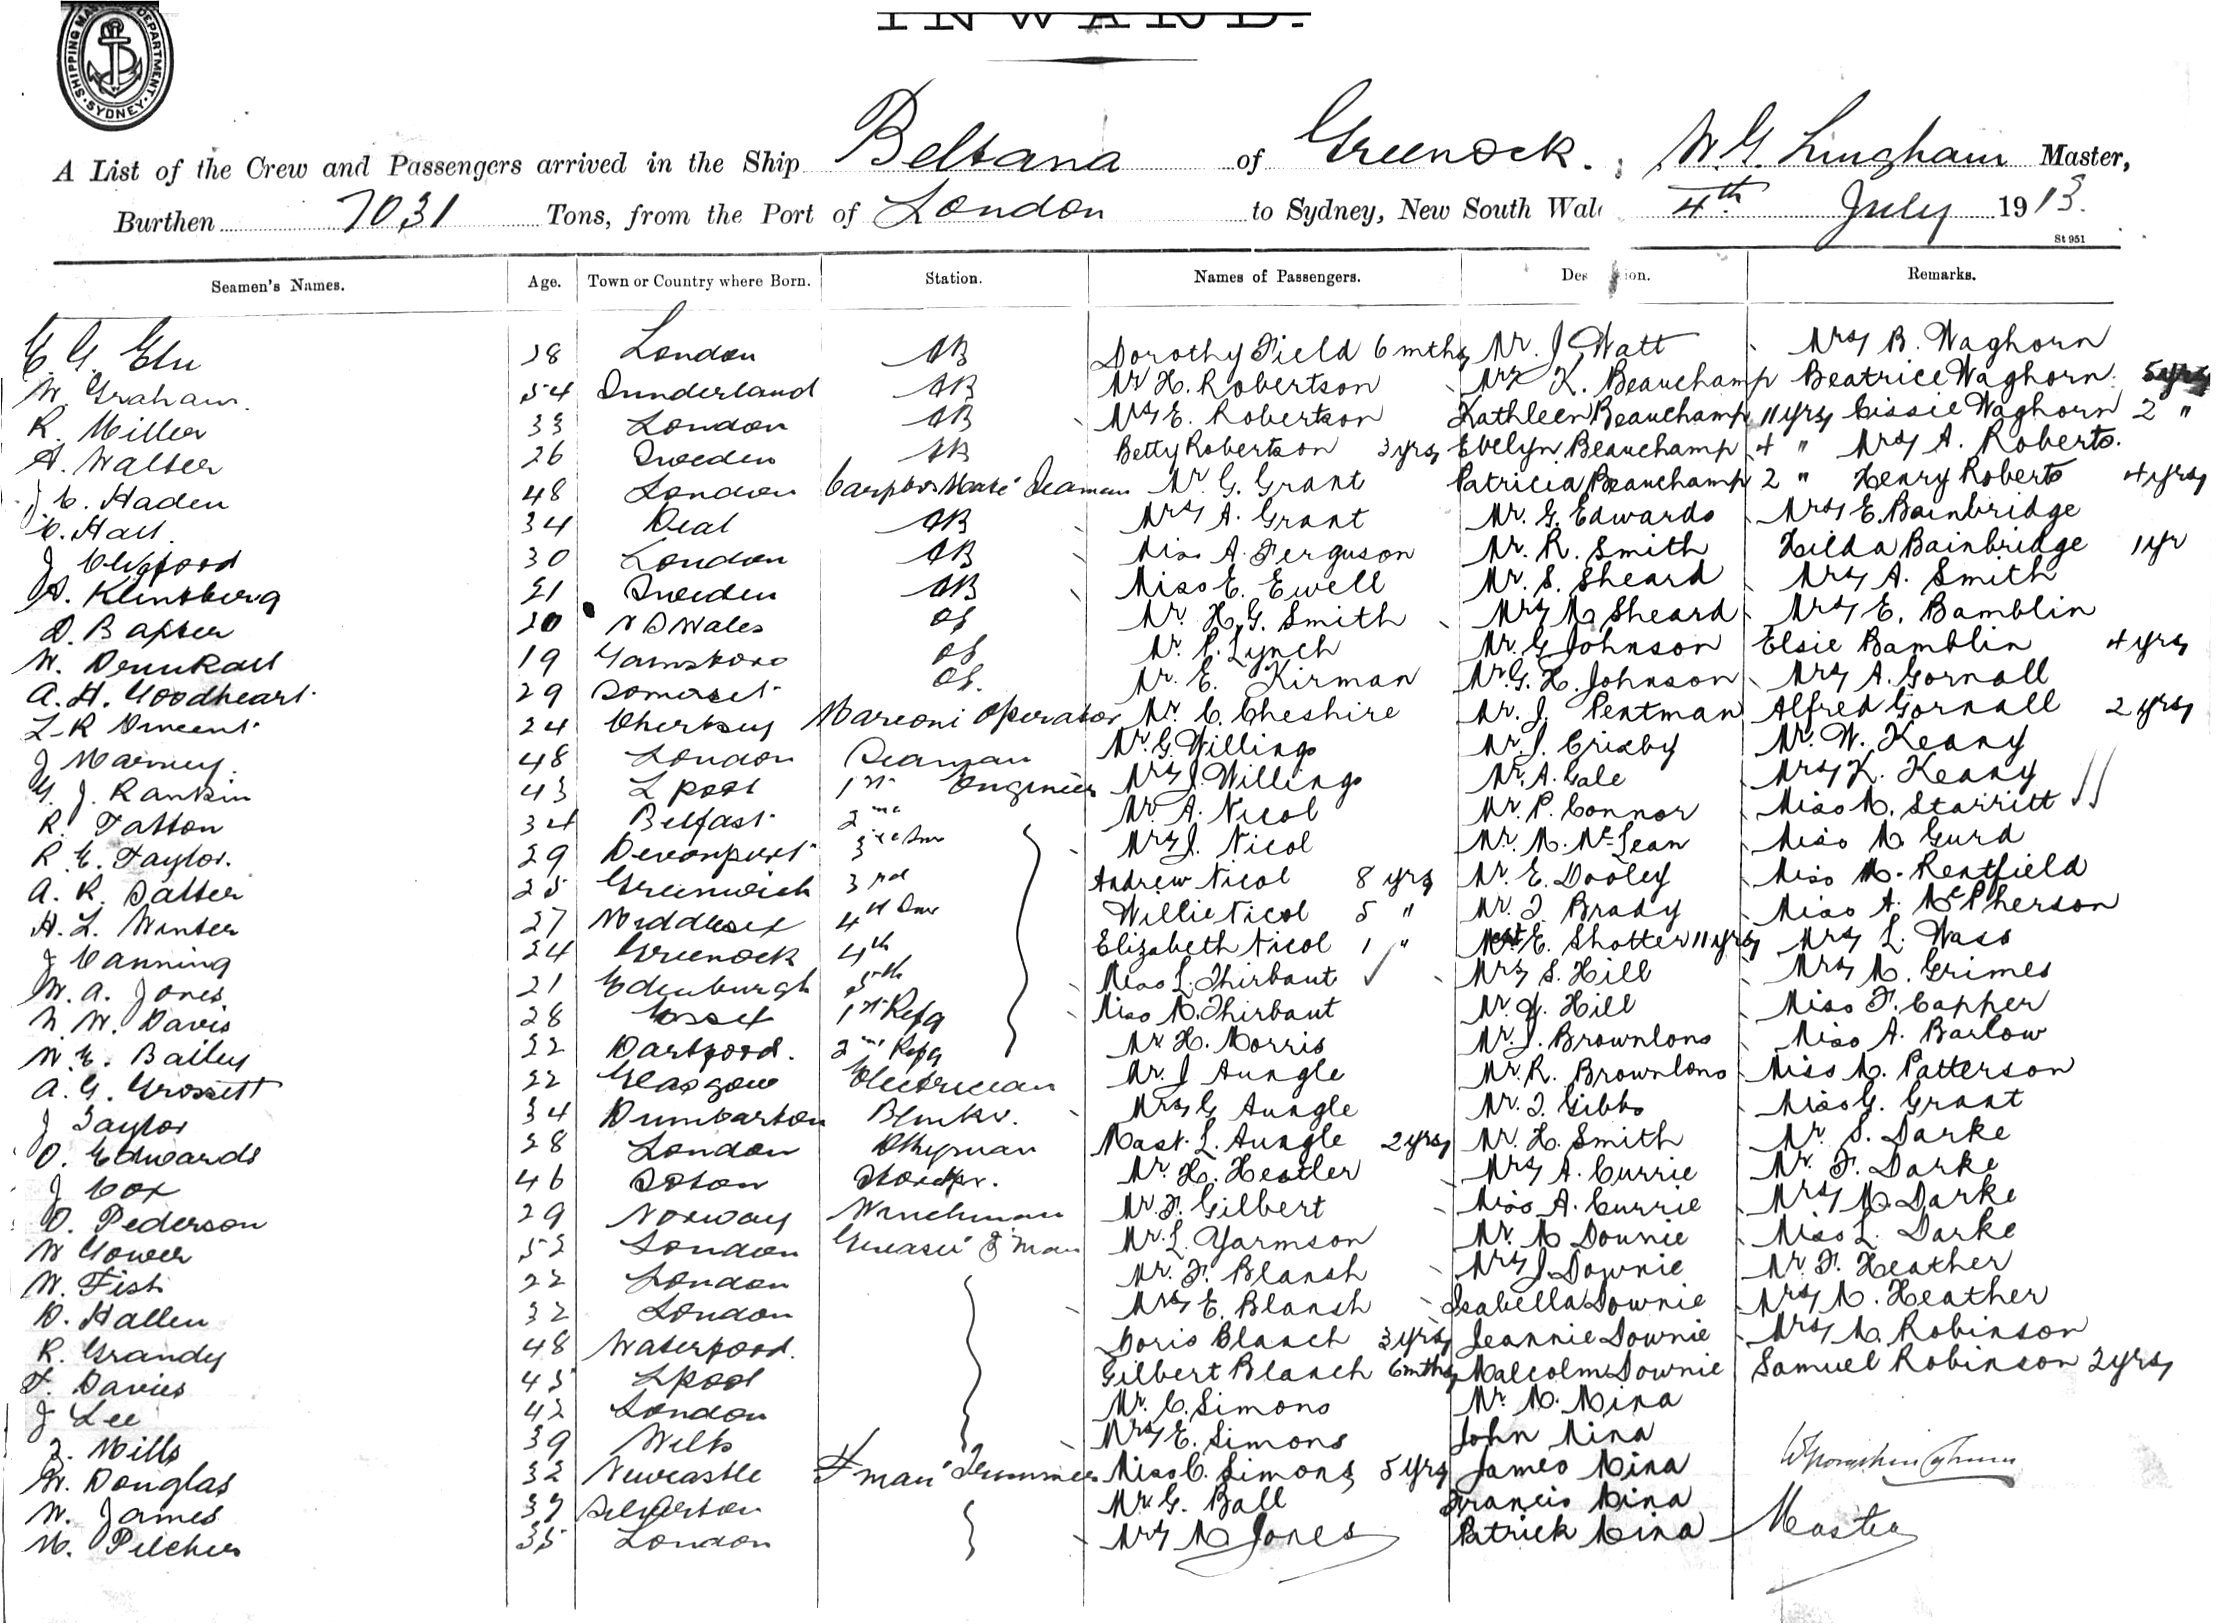 SHIPPING MASTERS DEPARTMENT SYDNEY
INWARD.
A List of the Crew and Passengers arrived in the Ship Beltana of Greenock. ; W. G. Lingham Master,
Burthen 7031 Tons, from the Port of London to Sydney, New South Wal 4th July 1913.
St 951
Seamen's Names. Age. Town or Country where Born. Station. Names of Passengers. Des ion. Remarks.
E. G. 28 London AB Dorothy Field 6 mths Mr. J Watt Mrs B. Waghorn
W. Graham. 54 Sunderland AB Mr H. Robertson Mrs K. Beauchamp Beatrice Waghorn. 5 yrs
R. Miller 33 London AB Mrs E. Robertson Kathleen Beauchamp 11 yrs Cissie Waghorn 2 "
A. Walter 26 Sweden AB Betty Robertson 3 yrs Evelyn Beauchamp 4 " Mrs A. Roberts.
J C. Haden 48 London Carptrs Mate Seaman Mr. G. Grant Patricia Beauchamp 2 " Henry Roberts 4 yrs
C. Hall. 34 Deal AB Mrs A. Grant Mr. G. Edwards Mrs E. Bainbridge
J Clifford 30 London AB Miss A. Ferguson Mr. R. Smith Hilda Bainbridge 1 yr
A. Klintberg 21 Sweden AB Miss E. Ewell Mr. S. Sheard Mrs A. Smith
D. Baxter 20 N S Wales OS Mr. H. G. Smith Mrs M Sheard Mrs E. Bamblin
W. 19 Gainsboro OS Mr. P. Lynch Mr. G Johnson Elsie Bamblin 4 yrs
A. H. Goodheart. 29 Somerset. OS. Mr. E. Kirman Mr. G. H. Johnson Mrs A. Gornall
L R Vincent. 24 Chertsey Marconi Operator Mr. C. Cheshire Mr. J. Pentman Alfred Gornall 2 yrs
J Marney. 48 London Seaman Mr. G. Willings Mr. J. Crixby Mr. W. Keany
G. J. Rankin 43 L pool 1st Engineer Mrs J. Willings Mr. A. Gale Mrs K. Keany
R. Tatton 34 Belfast. 2nd Mr. A. Nicol Mr. P. Connor Miss M. Starritt
R. E. Taylor. 29 Devonport. Mrs J. Nicol Mr. M. McLean Miss M Gurd
A. R. Salter 25 Greenwich 3rd Andrew Nicol 8 yrs Mr. E. Dooley Miss M. Rentfield
H. L. Winter 27 Middlesex 4th Willie Nicol 5 " Mr. T. Brady Miss A. McPherson
J Canning 24 Greenock 4th Elizabeth Nicol 1 " E. Shotter 11 yrs Mrs L. Wass
W. A. Jones. 21 Edinburgh 5th Miss L. Thirbaut Mrs S. Hill Mrs M. Grimes
W. Davis 28 Essex 1st Refg Miss M. Thirbaut Mr. Hill Miss F. Capper
W. E. Bailey 22 Dartford. 2nd Refg Mr H. Morris Mr. J. Brownlons Miss A. Barlow
A. G. Grossett 22 Glasgow Electrician Mr. J Aungle Mr. R. Brownlons Miss M. Patterson
J Taylor 34 Dumbarton Bmkr. Mrs G Aungle Mr. T. Gibbs Miss G. Grant
D. Edwards 28 London Dkeyman Mast. L. Aungle 2 yrs Mr. H. Smith Mr S. Darke
J Cox 46 Soton Storekpr. Mr. H. Hestler Mrs A. Currie Mr. F. Darke
O. Pederson 29 Norway Winchman Mr. F. Gilbert Miss A. Currie Mrs M. Darke
W Gower 52 London Greaser & F man Mr. L. Yarmson Mr. M Downie Miss L. Darke
W. Fish 22 London Mr. F. Blansh Mrs J. Downie Mr. F. Heather
D. Hallen 32 London Mrs E. Blansh Isabella Downie Mrs M. Heather
R. Grandy 48 Waterford. Doris Blanch 3 yrs Jeannie Downie Mrs M. Robinson
F. Davies 45 Lpool Gilbert Blanch 6 mths Malcolm Downie Samuel Robinson 2 yrs
J Lee 42 London Mr. C. Simons Mr. M. Mina
Mills 39 Wilts Mrs E. Simons John Mina
W. Douglas 32 Newcastle F man Trimmer Miss C. Simons 5 yrs James Mina
W. James 37 Silverton Mr. G. Ball Francis Mina
W. Pilcher 35 London Mrs M Jones Patrick Mina
Master